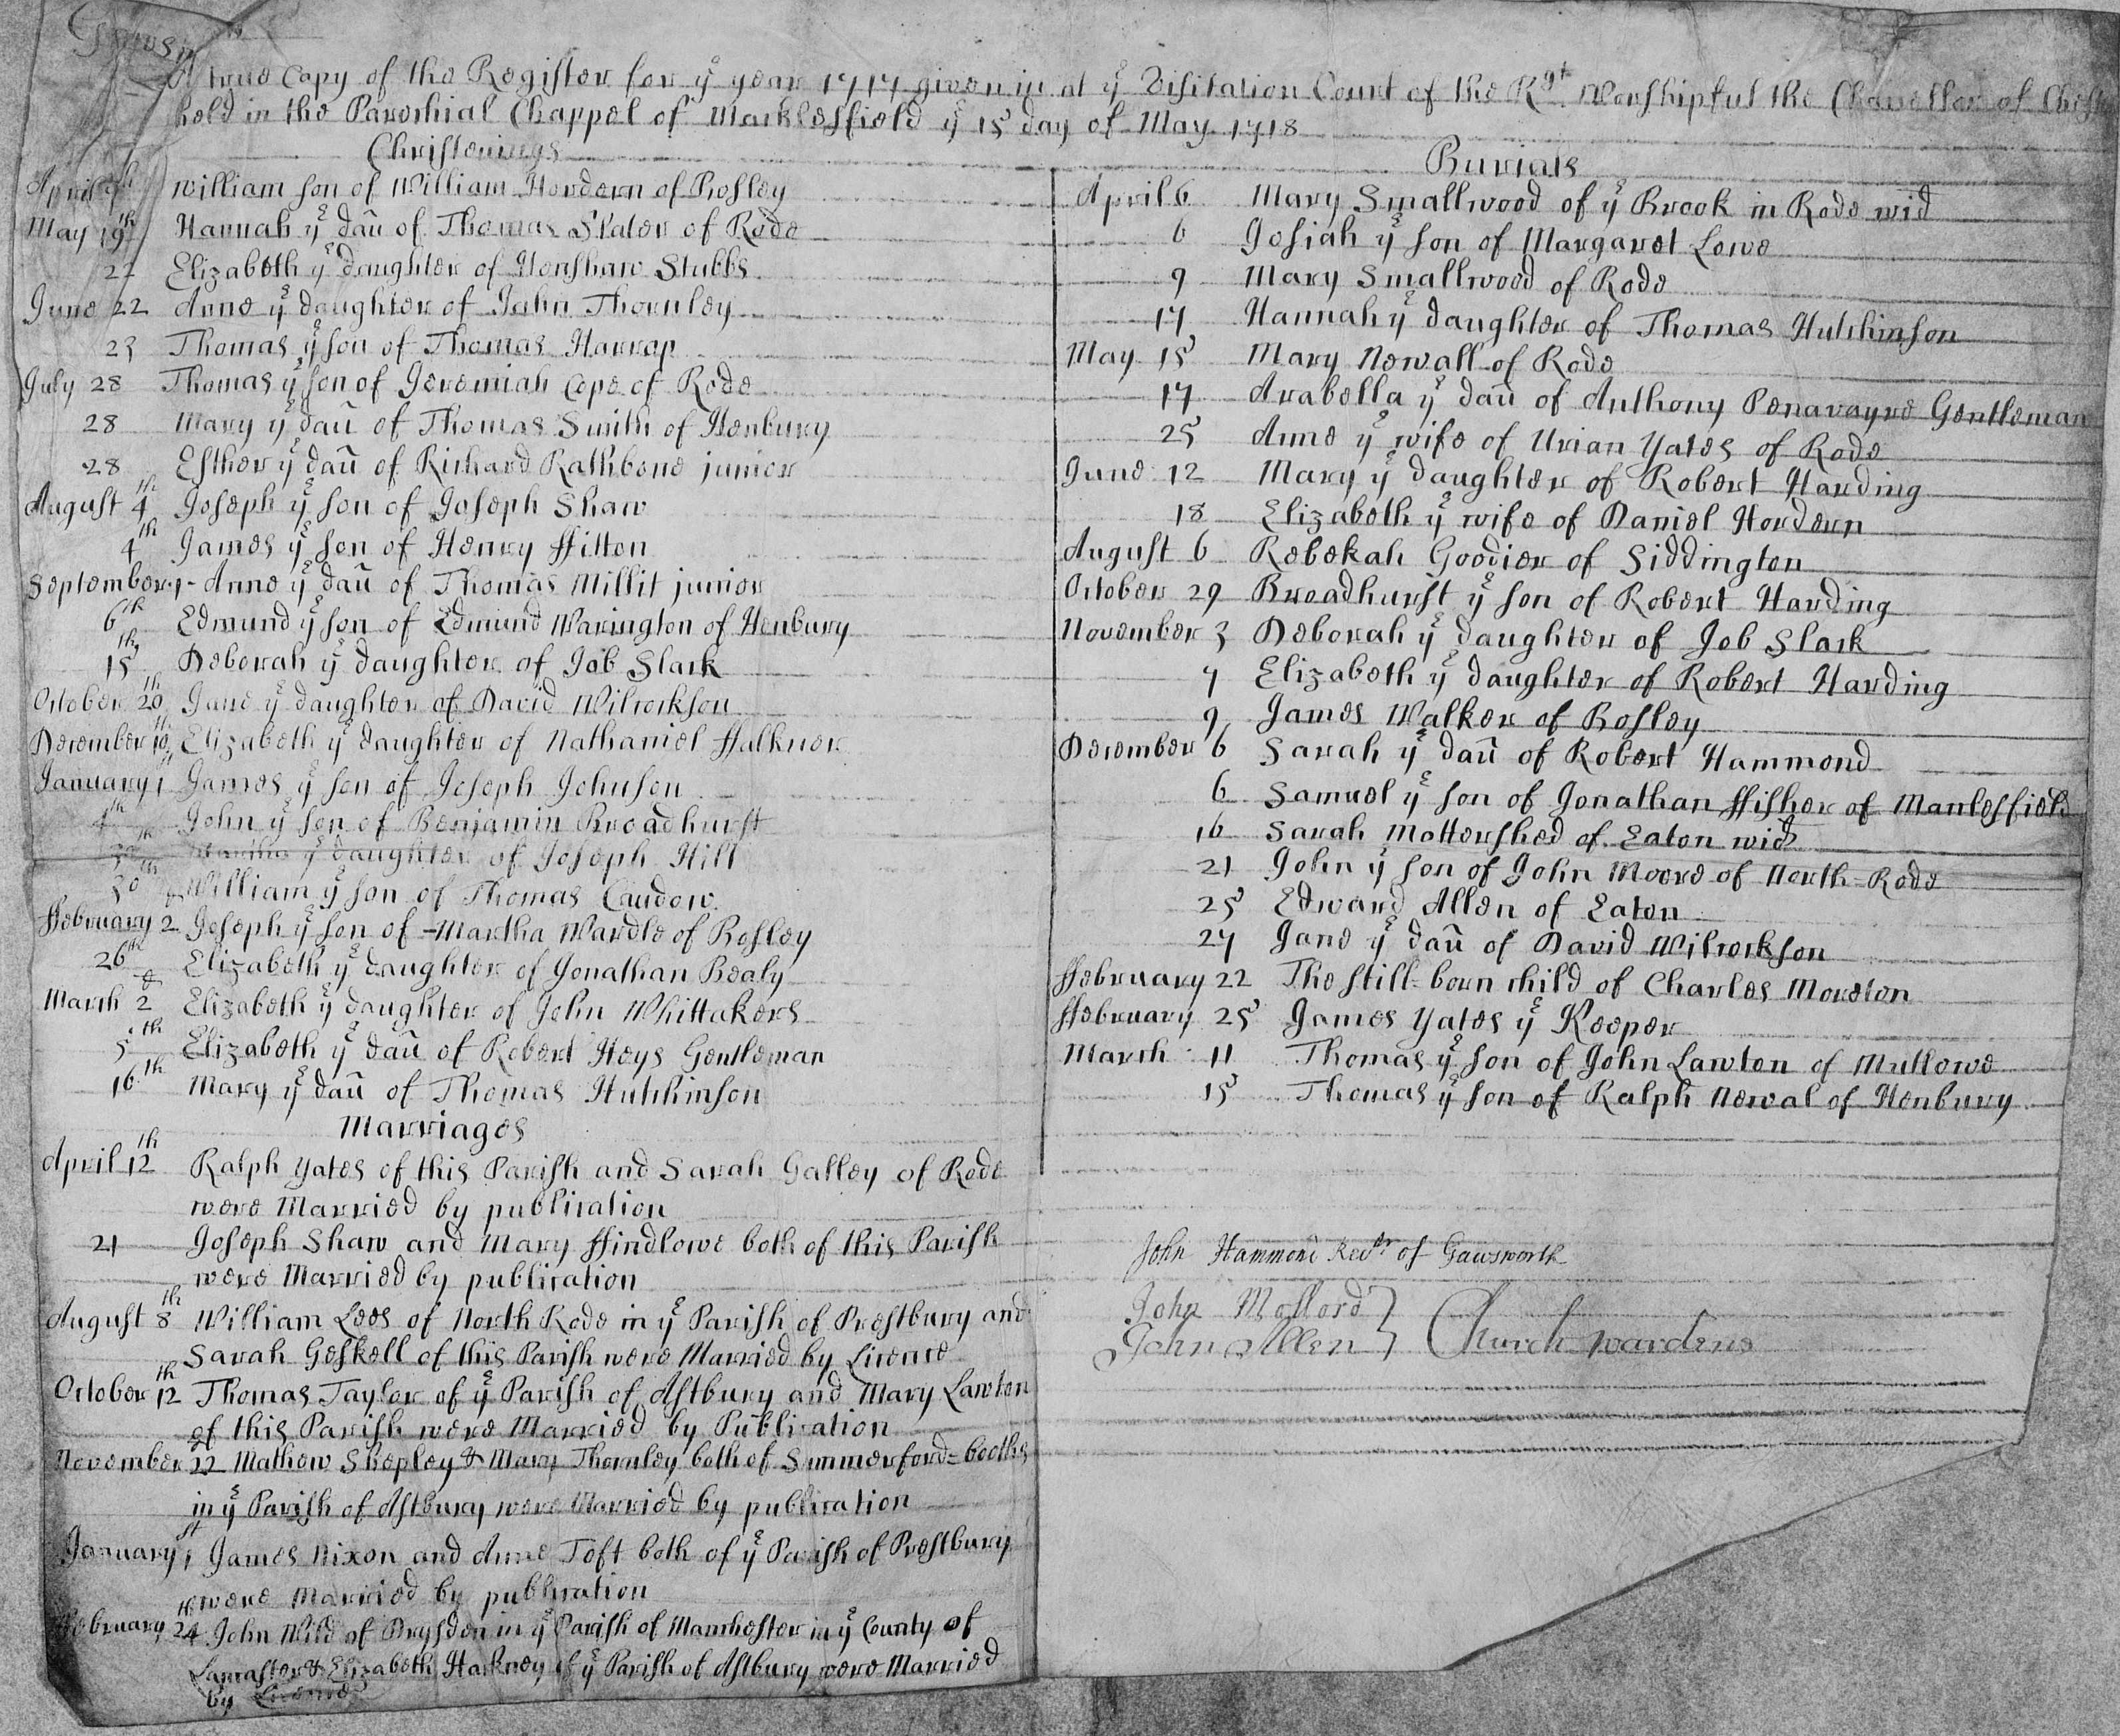 A true Copy of the Register for yͤ year 1717 given in at yͤ Visitation Court of the Rgt Worshipful the Chancellor of Chester
held in the Parochial Chappel of Macklesfield yͤ 15 day of May 1718
Christenings
April 7th William son of William Hordern of Bosley
May 19th Hannah yͤ dau of Thomas Slater of Rode
Elizabeth yͤ daughter of Henshaw Stubbs
June 22 Anne yͤ daughter of John Thornley
23 Thomas yͤ son of Thomas Harrap
July 28 Thomas yͤ son of Jeremiah Cope of Rode
28 Mary yͤ dau of Thomas Smith of Henbury
28 Esther yͤ dau of Richard Rathbone junior
August 4th Joseph yͤ son of Joseph Shaw
4th James yͤ son of Henry ffitton
September 1 Anne yͤ dau of Thomas Millit junior
6th Edmund yͤ son of Edmund Warington of Henbury
15th Deborah yͤ daughter of Job Slack
October 20th Jane yͤ daughter of David Wilcockson
December 10th Elizabeth yͤ daughter of Nathaniel ffalkner
January 1st James yͤ son of Joseph Johnson
4th John yͤ son of Benjamin Broadhurst
Martha yͤ daughter of Joseph Hill
30th William yͤ son of Thomas Caudow
ffebruary 2 Joseph yͤ son of Martha Wardle of Bosley
26th Elizabeth yͤ daughter of Jonathan Bealy
March 2d Elizabeth yͤ daughter of John Whittakers
5th Elizabeth yͤ dau of Robert Heys Gentleman
16th Mary yͤ dau of Thomas Hutchinson
Marriages
April 12th Ralph Yates of this Parish and Sarah Galley of Rode
were Married by publication
21 Joseph Shaw and Mary ffindlowe both of this Parish
were Married by publication
August 8th William Lees of North Rode in yͤ Parish of Prestbury and
Sarah Geskell of this Parish were Married by Licence
October 12th Thomas Taylor of yͤ Parish of Astbury and Mary Lawton
of this Parish were Married by Publication
November 22 Mathew Shepley & Mary Thornley both of Summerford=booths
in yͤ Parish of Astbury were Married by publication
January 1st James Nixon and Anne Toft both of yͤ Parish of Prestbury
were Married by publication
ffebruary 24th John Wild of Drysden in yͤ Parish of Manchester in yͤ County of
Lancaster & Elizabeth Hackney of yͤ Parish of Astbury were Married
by Licence
Burials
April 6 Mary Smallwood of yͤ Brook in Rode wid
6 Josiah yͤ son of Margaret Lowe
9 Mary Smallwood of Rode
17 Hannah yͤ daughter of Thomas Hutchinson
May 15 Mary Newall of Rode
17 Arabella yͤ dau of Anthony Penavayre Gentleman
25 Anne yͤ wife of Urian Yates of Rode
June 12 Mary yͤ daughter of Robert Harding
18 Elizabeth yͤ wife of Daniel Hordern
August 6 Rebekah Goodier of Siddington
October 29 Broadhurst yͤ son of Robert Harding
November 3 Deborah yͤ daughter of Job Slack
7 Elizabeth yͤ daughter of Robert Harding
9 James Walker of Bosley
December 6 Sarah yͤ dau of Robert Hammond
6 Samuel yͤ son of Jonathan ffisher of Manlesfield
16 Sarah Mottershed of Eaton wid
21 John yͤ son of John Moore of North=Rode
25 Edward Allen of Eaton
27 Jane yͤ dau of David Wilcockson
ffebruary 22 The still=born child of Charles Moreton
ffebruary 25 James Yates yͤ Keeper
March 11 Thomas yͤ son of John Lawton of Mutlowe
15 Thomas yͤ son of Ralph Newal of Henbury
John Hammond Rector of Gawsworth
John Mollord }
John Allen } Church wardens